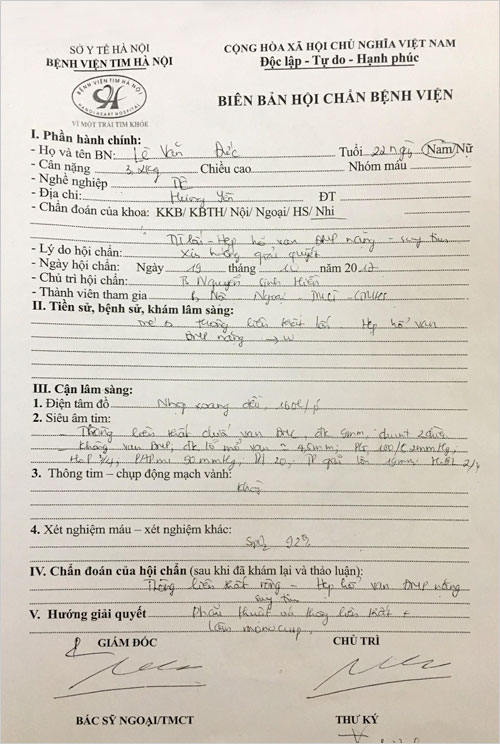 SỞ Y TẾ HÀ NỘI
BỆNH VIỆN TIM HÀ NỘI
BỆNH VIỆN TIM HÀ NỘI
HANOI HEART HOSPITAL
VÌ MỘT TRÁI TIM KHỎE
CỘNG HÒA XÃ HỘI CHỦ NGHĨA VIỆT NAM
Độc lập - Tự do - Hạnh phúc
BIÊN BẢN HỘI CHẨN BỆNH VIỆN
I. Phần hành chính:
- Họ và tên BN: Lê Văn Đức Tuổi 22 ngày Nam/Nữ
- Cân nặng 3,2kg Chiều cao Nhóm máu
- Nghề nghiệp TE
- Địa chỉ: Hưng Yên ĐT
- Chẩn đoán của khoa: KKB/ KBTH/ Nội/ Ngoại/ HS/ Nhi
Hẹp hở van ĐMP nặng - suy tim
- Lý do hội chẩn: Xin hướng giải quyết
- Ngày hội chẩn: Ngày 19 tháng năm 2017
- Chủ trì hội chẩn: B Nguyễn Sinh Hiền
- Thành viên tham gia B Nội Ngoại
II. Tiền sử, bệnh sử, khám lâm sàng:
thông liên thất Hẹp hở van
ĐMP nặng
III. Cận lâm sàng:
1. Điện tâm đồ Nhịp xoang đều, 160l/p
2. Siêu âm tim:
- Thông liên thất dưới van ĐMC, đk 9mm, shunt 2 chiều
- Không van ĐMP, đk lỗ mở van ≈ 4,5mm, PG 100/ mmHg,
HoP 3/4, 50 mmHg, 20, TP giãn 2/4
3. Thông tim – chụp động mạch vành:
Không
4. Xét nghiệm máu – xét nghiệm khác:
SpO2 92%
IV. Chẩn đoán của hội chẩn (sau khi đã khám lại và thảo luận):
Thông liên thất rộng - Hẹp hở van ĐMP nặng
suy tim
V. Hướng giải quyết Phẫu thuật vá thông liên thất +
làm monocusp
GIÁM ĐỐC CHỦ TRÌ
BÁC SỸ NGOẠI/TMCT THƯ KÝ